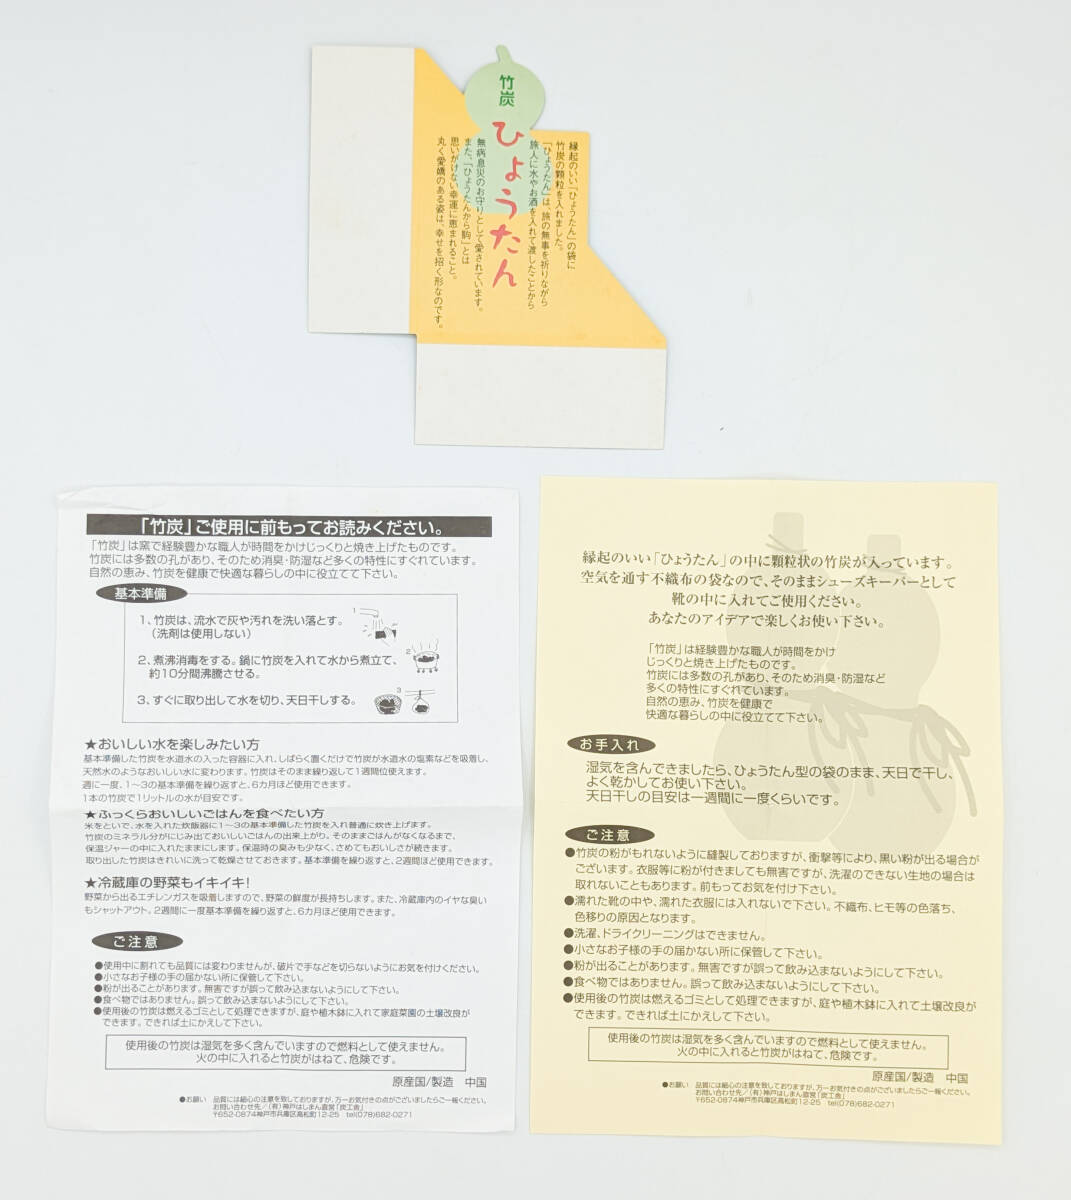 竹炭
ひょうたん
縁起のいい「ひょうたん」の袋に
竹炭の顆粒を入れました。
「ひょうたん」は、旅の無事を祈りながら
旅人に水やお酒を入れて渡したことから
無病息災のお守りとして愛されています。
また、「ひょうたんから駒」とは
思いがけない幸運に恵まれること。
丸く愛嬌のある姿は、幸せを招く形なのです。
「竹炭」ご使用に前もってお読みください。
「竹炭」は窯で経験豊かな職人が時間をかけじっくりと焼き上げたものです。
竹炭には多数の孔があり、そのため消臭・防湿など多くの特性にすぐれています。
自然の恵み、竹炭を健康で快適な暮らしの中に役立てて下さい。
基本準備
1、竹炭は、流水で灰や汚れを洗い落とす。
(洗剤は使用しない)
2、煮沸消毒をする。鍋に竹炭を入れて水から煮立て、
約10分間沸騰させる。
3、すぐに取り出して水を切り、天日干しする。
1
2
3
★おいしい水を楽しみたい方
基本準備した竹炭を水道水の入った容器に入れ、しばらく置くだけで竹炭が水道水の塩素などを吸着し、
天然水のようなおいしい水に変わります。竹炭はそのまま繰り返して1週間位使えます。
週に一度、1〜3の基本準備を繰り返すと、6カ月ほど使用できます。
1本の竹炭で1リットルの水が目安です。
★ふっくらおいしいごはんを食べたい方
米をといで、水を入れた炊飯器に1〜3の基本準備した竹炭を入れ普通に炊き上げます。
竹炭のミネラル分がにじみ出ておいしいごはんの出来上がり。そのままごはんがなくなるまで、
保温ジャーの中に入れたままにします。保温時の臭みも少なく、さめてもおいしさが続きます。
取り出した竹炭はきれいに洗って乾燥させておきます。基本準備を繰り返すと、2週間ほど使用できます。
★冷蔵庫の野菜もイキイキ!
野菜から出るエチレンガスを吸着しますので、野菜の鮮度が長持ちします。また、冷蔵庫内のイヤな臭い
もシャットアウト。2週間に一度基本準備を繰り返すと、6カ月ほど使用できます。
ご注意
●使用中に割れても品質には変わりませんが、破片で手などを切らないようにお気を付けください。
●小さなお子様の手の届かない所に保管して下さい。
●粉が出ることがあります。無害ですが誤って飲み込まないようにして下さい。
●食べ物ではありません。誤って飲み込まないようにして下さい。
●使用後の竹炭は燃えるゴミとして処理できますが、庭や植木鉢に入れて家庭菜園の土壌改良が
できます。できれば土にかえして下さい。
使用後の竹炭は湿気を多く含んでいますので燃料として使えません。
火の中に入れると竹炭がはねて、危険です。
原産国/製造 中国
●お願い 品質には細心の注意を致しておりますが、万一お気付きの点がございましたらご一報ください。
お問い合わせ先/(有)神戸はしまん直営「炭工舎」
〒652-0874神戸市兵庫区高松町12-25 tel(078)682-0271
縁起のいい「ひょうたん」の中に顆粒状の竹炭が入っています。
空気を通す不織布の袋なので、そのままシューズキーパーとして
靴の中に入れてご使用ください。
あなたのアイデアで楽しくお使い下さい。
「竹炭」は経験豊かな職人が時間をかけ
じっくりと焼き上げたものです。
竹炭には多数の孔があり、そのため消臭・防湿など
多くの特性にすぐれています。
自然の恵み、竹炭を健康で
快適な暮らしの中に役立てて下さい。
お手入れ
湿気を含んできましたら、ひょうたん型の袋のまま、天日で干し、
よく乾かしてお使い下さい。
天日干しの目安は一週間に一度くらいです。
ご注意
●竹炭の粉がもれないように縫製しておりますが、衝撃等により、黒い粉が出る場合が
ございます。衣服等に粉が付きましても無害ですが、洗濯のできない生地の場合は
取れないこともあります。前もってお気を付け下さい。
●濡れた靴の中や、濡れた衣服には入れないで下さい。不織布、ヒモ等の色落ち、
色移りの原因となります。
●洗濯、ドライクリーニングはできません。
●小さなお子様の手の届かない所に保管して下さい。
●粉が出ることがあります。無害ですが誤って飲み込まないようにして下さい。
●食べ物ではありません。誤って飲み込まないようにして下さい。
●使用後の竹炭は燃えるゴミとして処理できますが、庭や植木鉢に入れて土壌改良が
できます。できれば土にかえして下さい。
使用後の竹炭は湿気を多く含んでいますので燃料として使えません。
火の中に入れると竹炭がはねて、危険です。
原産国/製造 中国
●お願い 品質には細心の注意を致しておりますが、万一お気付きの点がございましたらご一報ください。
お問い合わせ先/(有)神戸はしまん直営「炭工舎」
〒652-0874神戸市兵庫区高松町12-25 tel(078)682-0271